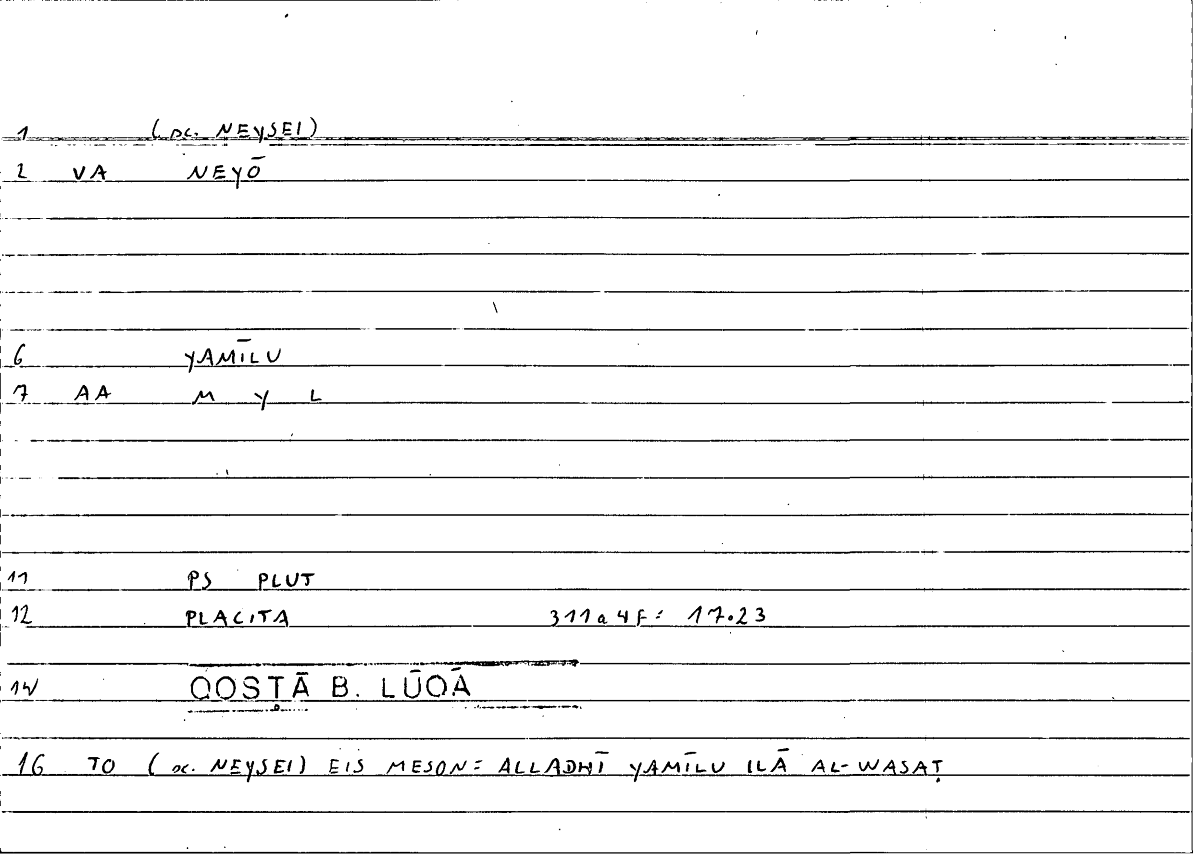 1 (sc. NEYSEI)
2 VA NEYŌ
6 YAMĪLU
7 AA M Y L
11 PS PLUT
12 PLACITA 311a4f: 17.23
14 QOSṬĀ B. LŪQĀ
16 TO (sc. NEYSEI) EIS MESON = ALLADHĪ YAMĪLU ILĀ AL-WASAṬ